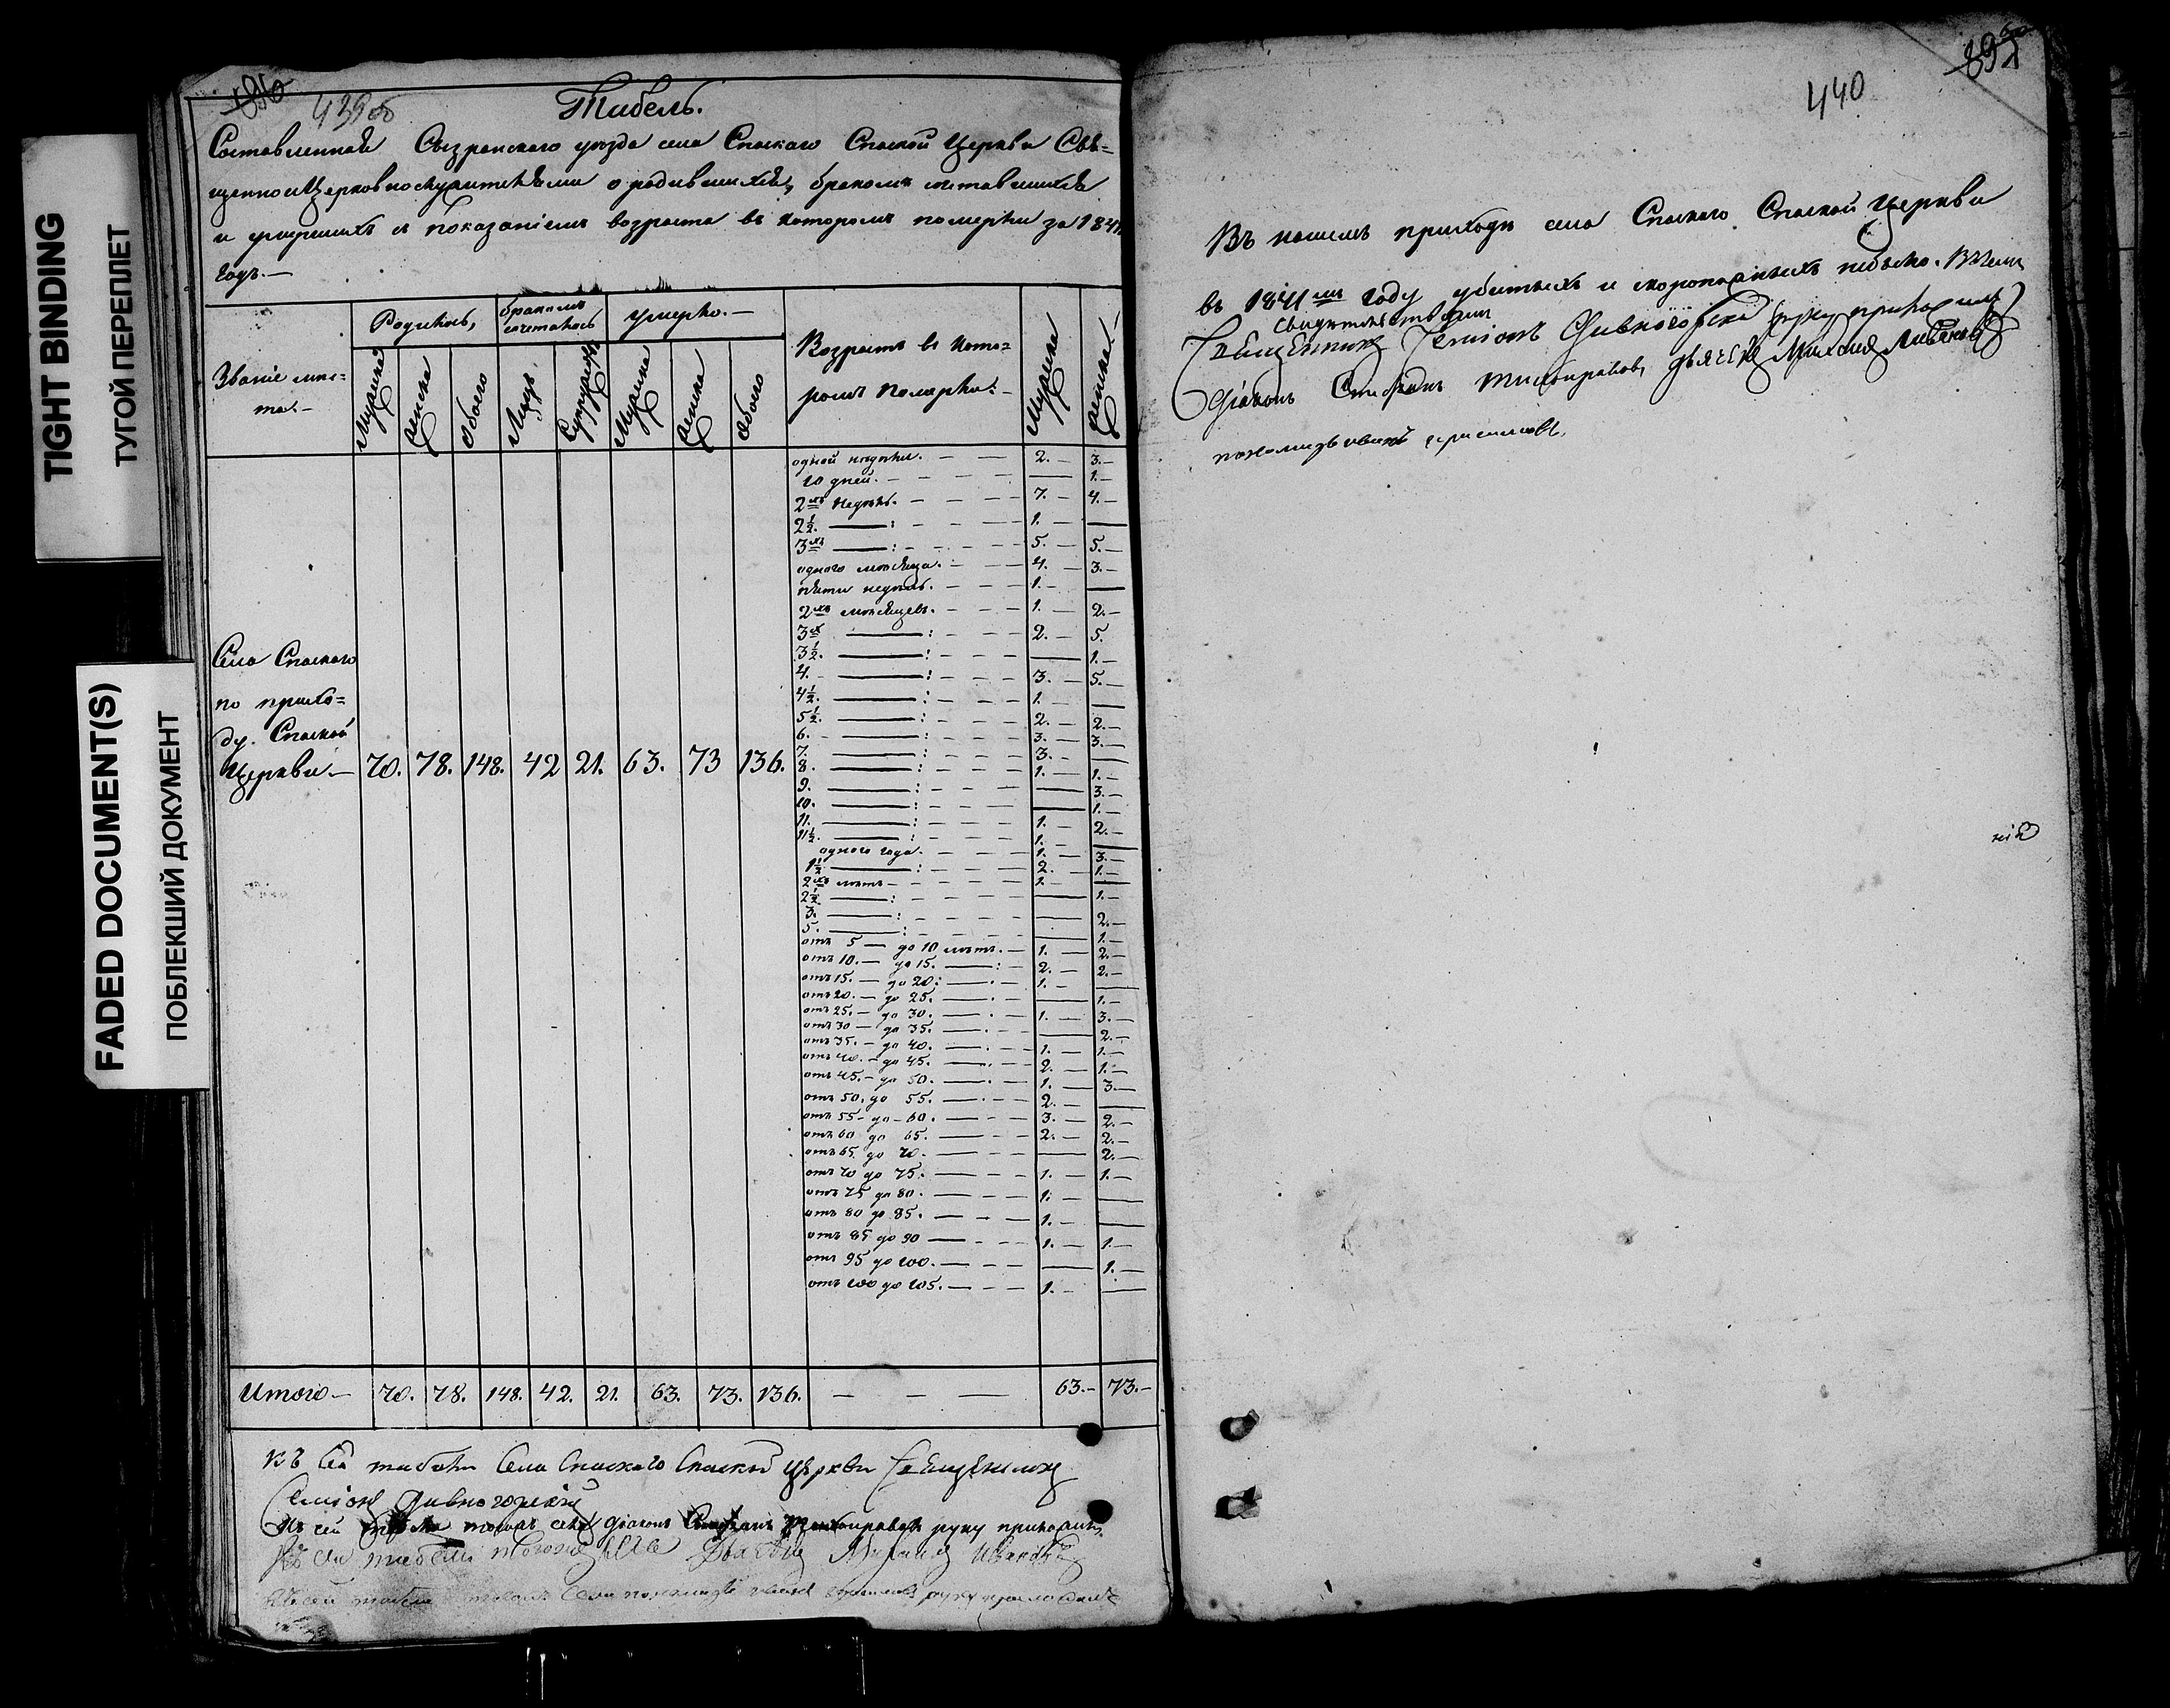 TIGHT BINDING
ТУГОЙ ПЕРЕПЛЕТ
FADED DOCUMENT(S)
ПОБЛЕКШИЙ ДОКУМЕНТ
896
439об
Табель.
Составленная Сызранскаго уезда села Спаскаго Спаской Церкви Свя=
щенноиЦерковнослужителями о родившихся, бракомъ сочтавшихся
и умершихъ съ показаніемъ возраста въ которомъ померли за 1841
годъ.—
Званіе мес=
та.—
Родилось,
бракомъ
сочеталось
умерло.—
Возрастъ въ кото=
ромъ померли:—
Мужска
женска
обоего
Лицъ
Супружествъ
Мужска
женска
обоего
Мужска
женска
Села Спаскаго
по прихо=
ду Спаской
Церкви— 70. 78. 148. 42 21. 63. 73 136.
одной недели. — — 2. — 3.—
10 дней. — — 1.—
2хъ недель. — — 7. — 4.—
2½. — : — — 1. — —
3хъ — : — — 5. — 5.—
одного месяца. — — 4. — 3.—
пяти недель. — — 1. — —
2хъ месяцевъ. — — 1. — 2.—
3х — : — — 2. — 5.
3½. — : — — — 1.—
4. — : — — 3. — 5.—
4½. — : — — 1. — —
5½. — : — — 2. — 2.—
6. — : — — 3. — 3.—
7. — : — — 3. — —
8. — : — — 1. — 1.—
9. — : — — — 3.—
10. — : — — — 1.—
11. — : — — 1. — 2.—
11½. — : — — 1. — —
одного года. — — 1. — 3.—
1½ — : — — 2. — 1.—
2хъ летъ — — 1. — —
2½. — : — — — 1.—
3. — : — — — 2.—
5. — : — — — 1.—
отъ 5 — до 10 летъ. — 1. — 2.—
отъ 10. — до 15. — : — 2. — 2.—
отъ 15. — до 20: — . — 1. — —
отъ 20. — до 25. — . — — 1.—
отъ 25. — до 30. — . — 1. — 3.—
отъ 30 — до 35. — . — — 2.—
отъ 35. — до 40. — . — 1. — 1.—
отъ 40. — до 45. — . — 2. — 1.—
отъ 45. — до 50. — . — 1. — 3.—
отъ 50. до 55. — . — 2. — —
отъ 55 — до — 60. — — 3. — 2.—
отъ 60 до 65. — — 2. — 2.—
отъ 65 до 70. — — — 2.—
отъ 70 до 75. — — 1. — 1.—
отъ 75 до 80. — — 1. — —
отъ 80 до 85. — — 1. — —
отъ 85 до 90 — — 1. — 1.—
отъ 95 до 100. — — — 1.—
отъ 100 до 105. — — 1. — —
Итого— 70. 78. 148. 42. 21. 63. 73. 136. — — — 63.— 73.—
Къ сей табели села Спаского Спаской церкви Священникъ
Симіонъ Дивногорскій
Къ сей табели тогожъ села діаконъ Стефанъ руку приложилъ
Къ сей табели тогоже села Дьячекъ Михаилъ Ивановъ
Къ сей табели тогожъ села пономарь руку приложилъ
440
Въ нашемъ приходе села Спаскаго Спаской Церкви
въ 1841мъ году убитыхъ и скоропостижныхъ небыло. Въ чемъ
свидетельствуемъ
Священникъ Семіонъ Дивногорскій руку приложилъ
Діаконъ Стефанъ дьячекъ Михаилъ Ивановъ